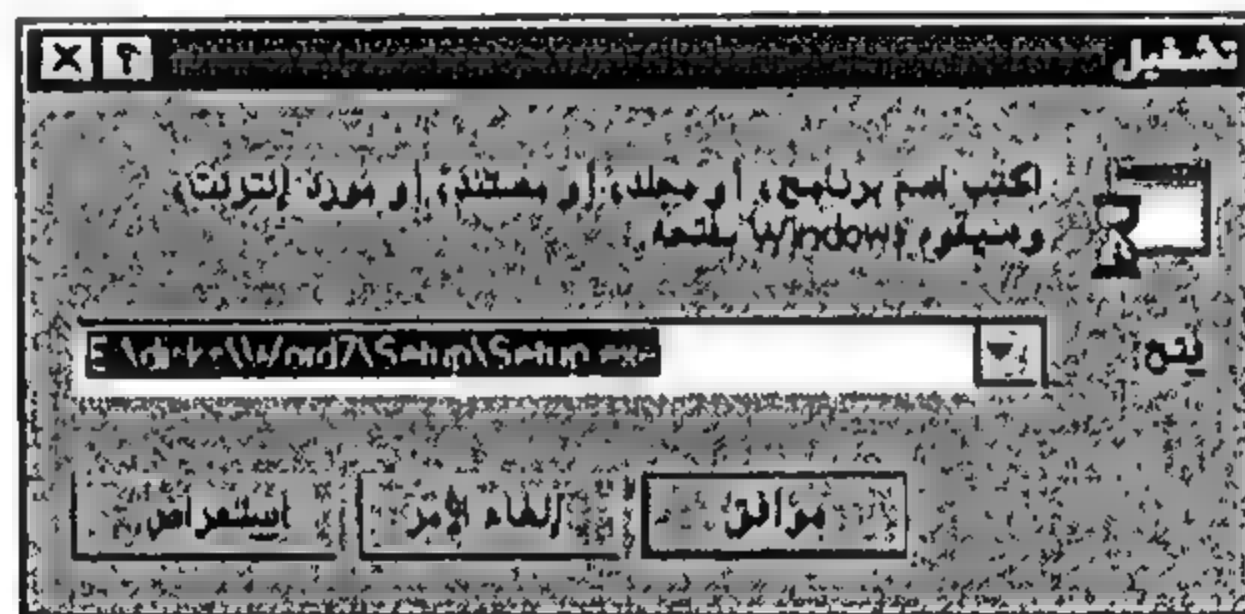 تشغيل
اكتب اسم برنامج، أو مجلد، أو مستند، أو مورد إنترنت،
وسيقوم Windows بفتحه
فتح:
\Word7\Setup\Setup.exe
موافق
إلغاء الأمر
استعراض